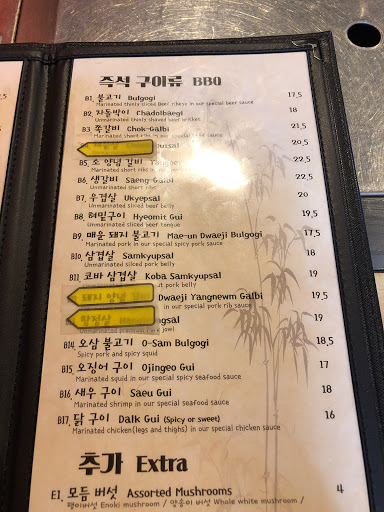 즉석 구이류 BBQ
B1. 불고기 Bulgogi 17,5
Marinated thinly sliced Beef ribeye in our special beef sauce
B2. 차돌박이 Chadolbaegi 18
Unmarinated thinly shaved beef brisket
B3. 쪽갈비 Chok-Galbi 21,5
Marinated short ribs in our special beef sauce
20,5
B5. 소 양념 갈비 22,5
Marinated short ribs in
B6. 생갈비 Saeng Galbi 22,5
Unmarinated short ribs
B7. 우겹살 Ukyepsal 20
Unmarinated sliced beef belly
B8. 혀밑구이 Hyeomit Gui 19,5
Unmarinated sliced beef tongue
B9. 매운 돼지 불고기 Mae-un Dwaeji Bulgogi 17,5
Marinated pork in our special spicy pork sauce
B10. 삼겹살 Samkyupsal 19
Unmarinated sliced pork belly
B11. 코바 삼겹살 Koba Samkyupsal 19
pork belly
돼지 양념 Dwaeji Yangnewm Galbi 19,5
in our special pork rib sauce
항정살 gsal 19
jowl
B14. 오삼 불고기 O-Sam Bulgogi 18,5
Spicy pork and spicy squid
B15. 오징어 구이 Ojingeo Gui 17
Marinated squid in our special spicy seafood sauce
B16. 새우 구이 Saeu Gui 18
Marinated shrimp in our special seafood sauce
B17. 닭 구이 Dalk Gui (Spicy or sweet) 16
Marinated chicken(legs and thighs) in our special chicken sauce
추가 Extra
E1. 모듬 버섯 Assorted Mushrooms 4
팽이버섯 Enoki mushroom / 양송이 버섯 Whole white mushroom /